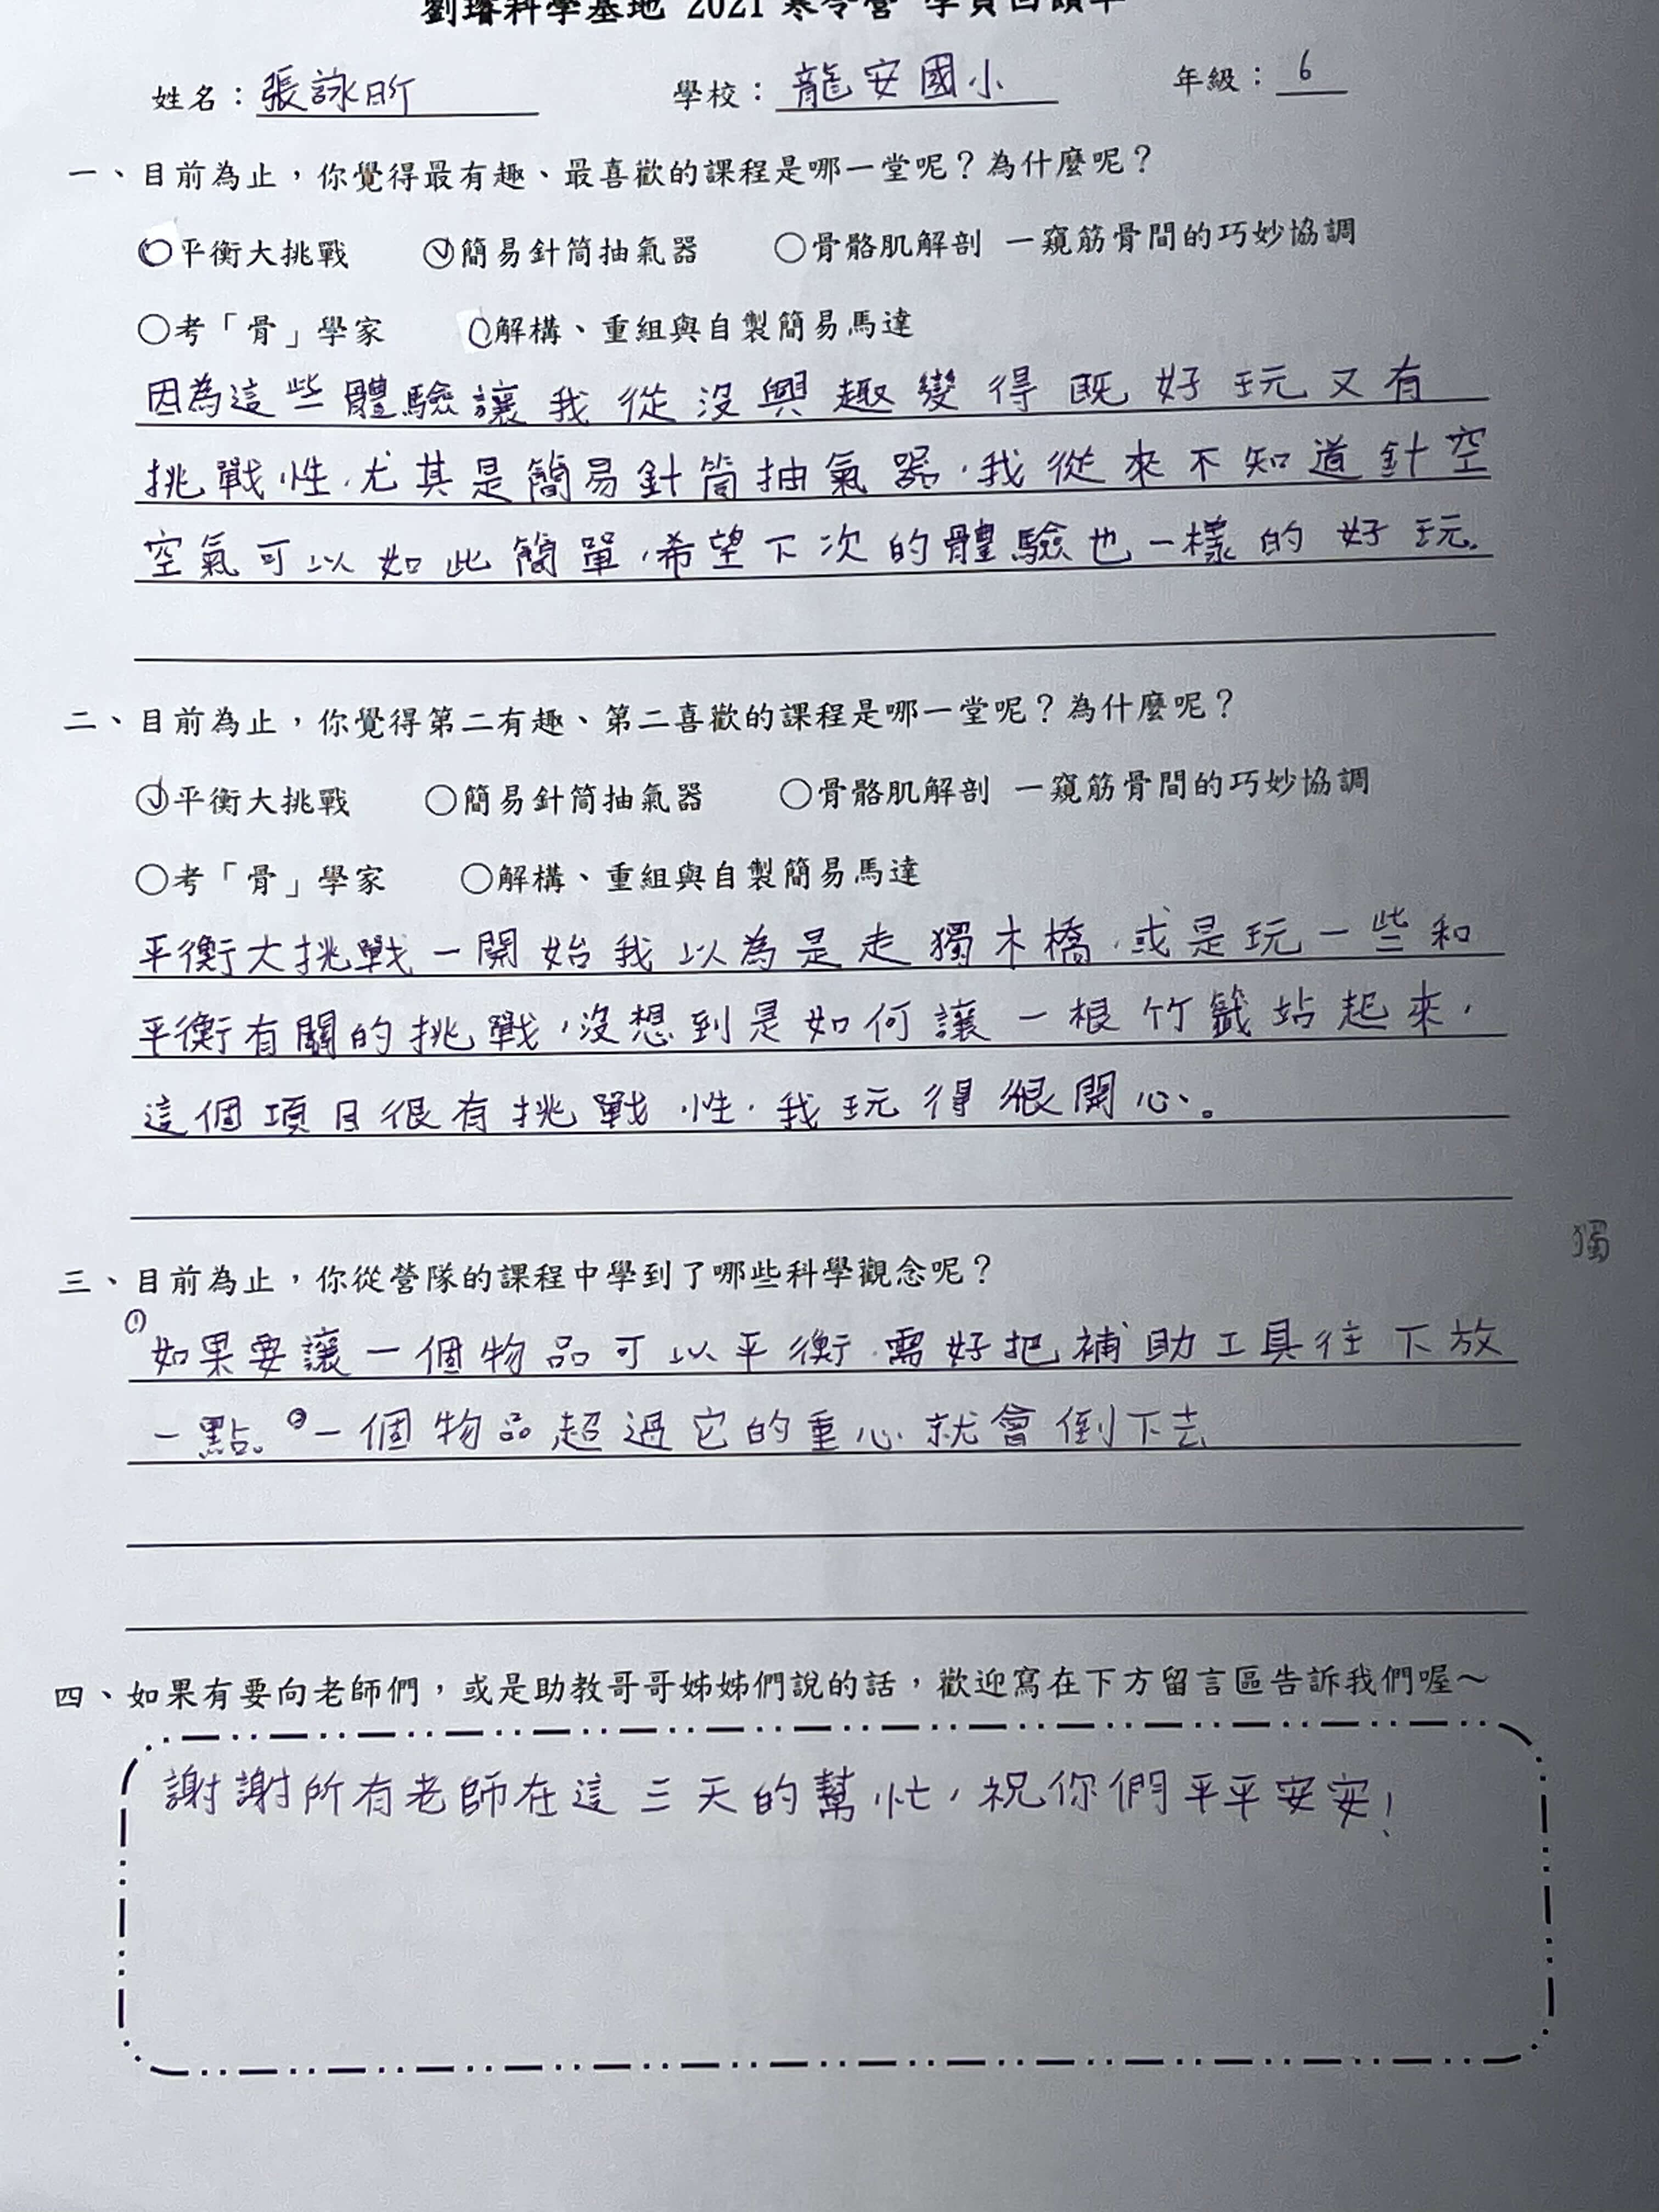 劉璿科學基地 2021 寒令營 學員回饋單
姓名：張詠昕 學校：龍安國小 年級：6
一、目前為止，你覺得最有趣、最喜歡的課程是哪一堂呢？為什麼呢？
○平衡大挑戰 ☑簡易針筒抽氣器 ○骨骼肌解剖 一窺筋骨間的巧妙協調
○考「骨」學家 ○解構、重組與自製簡易馬達
因為這些體驗讓我從沒興趣變得既好玩又有
挑戰性，尤其是簡易針筒抽氣器，我從來不知道針空
空氣可以如此簡單，希望下次的體驗也一樣的好玩。
二、目前為止，你覺得第二有趣、第二喜歡的課程是哪一堂呢？為什麼呢？
☑平衡大挑戰 ○簡易針筒抽氣器 ○骨骼肌解剖 一窺筋骨間的巧妙協調
○考「骨」學家 ○解構、重組與自製簡易馬達
平衡大挑戰一開始我以為是走獨木橋，或是玩一些和
平衡有關的挑戰，沒想到是如何讓一根竹籤站起來，
這個項目很有挑戰性，我玩得很開心。
獨
三、目前為止，你從營隊的課程中學到了哪些科學觀念呢？
①如果要讓一個物品可以平衡，需好把補助工具往下放
一點。②一個物品超過它的重心就會倒下去
四、如果有要向老師們，或是助教哥哥姊姊們說的話，歡迎寫在下方留言區告訴我們喔～
謝謝所有老師在這三天的幫忙，祝你們平平安安！